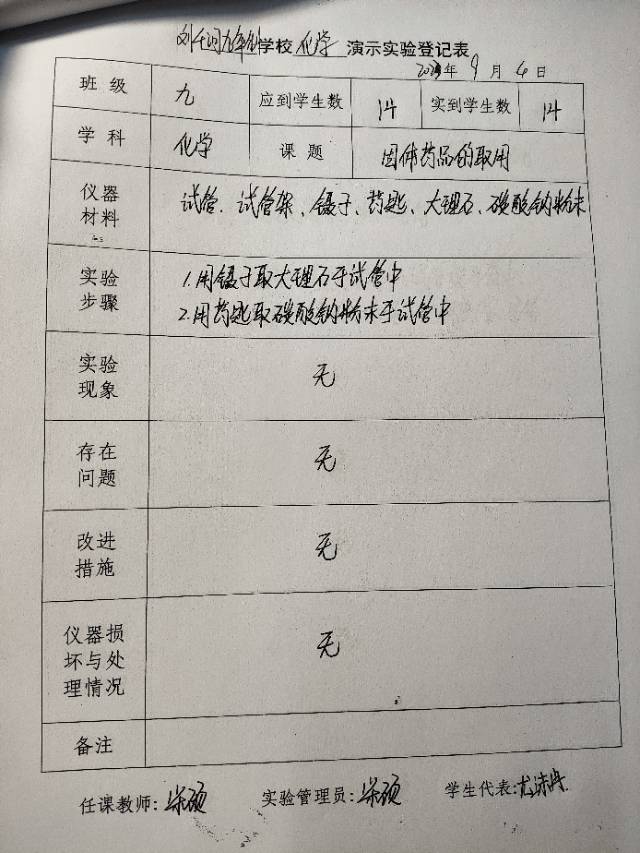 学校 化学 演示实验登记表
年 9 月 4 日
班级 九 应到学生数 14 实到学生数 14
学科 化学 课题 固体药品的取用
仪器材料 试管、试管架、镊子、药匙、大理石、碳酸钠粉末
实验步骤 1.用镊子取大理石于试管中
2.用药匙取碳酸钠粉末于试管中
实验现象 无
存在问题 无
改进措施 无
仪器损坏与处理情况 无
备注
任课教师: 实验管理员: 学生代表: